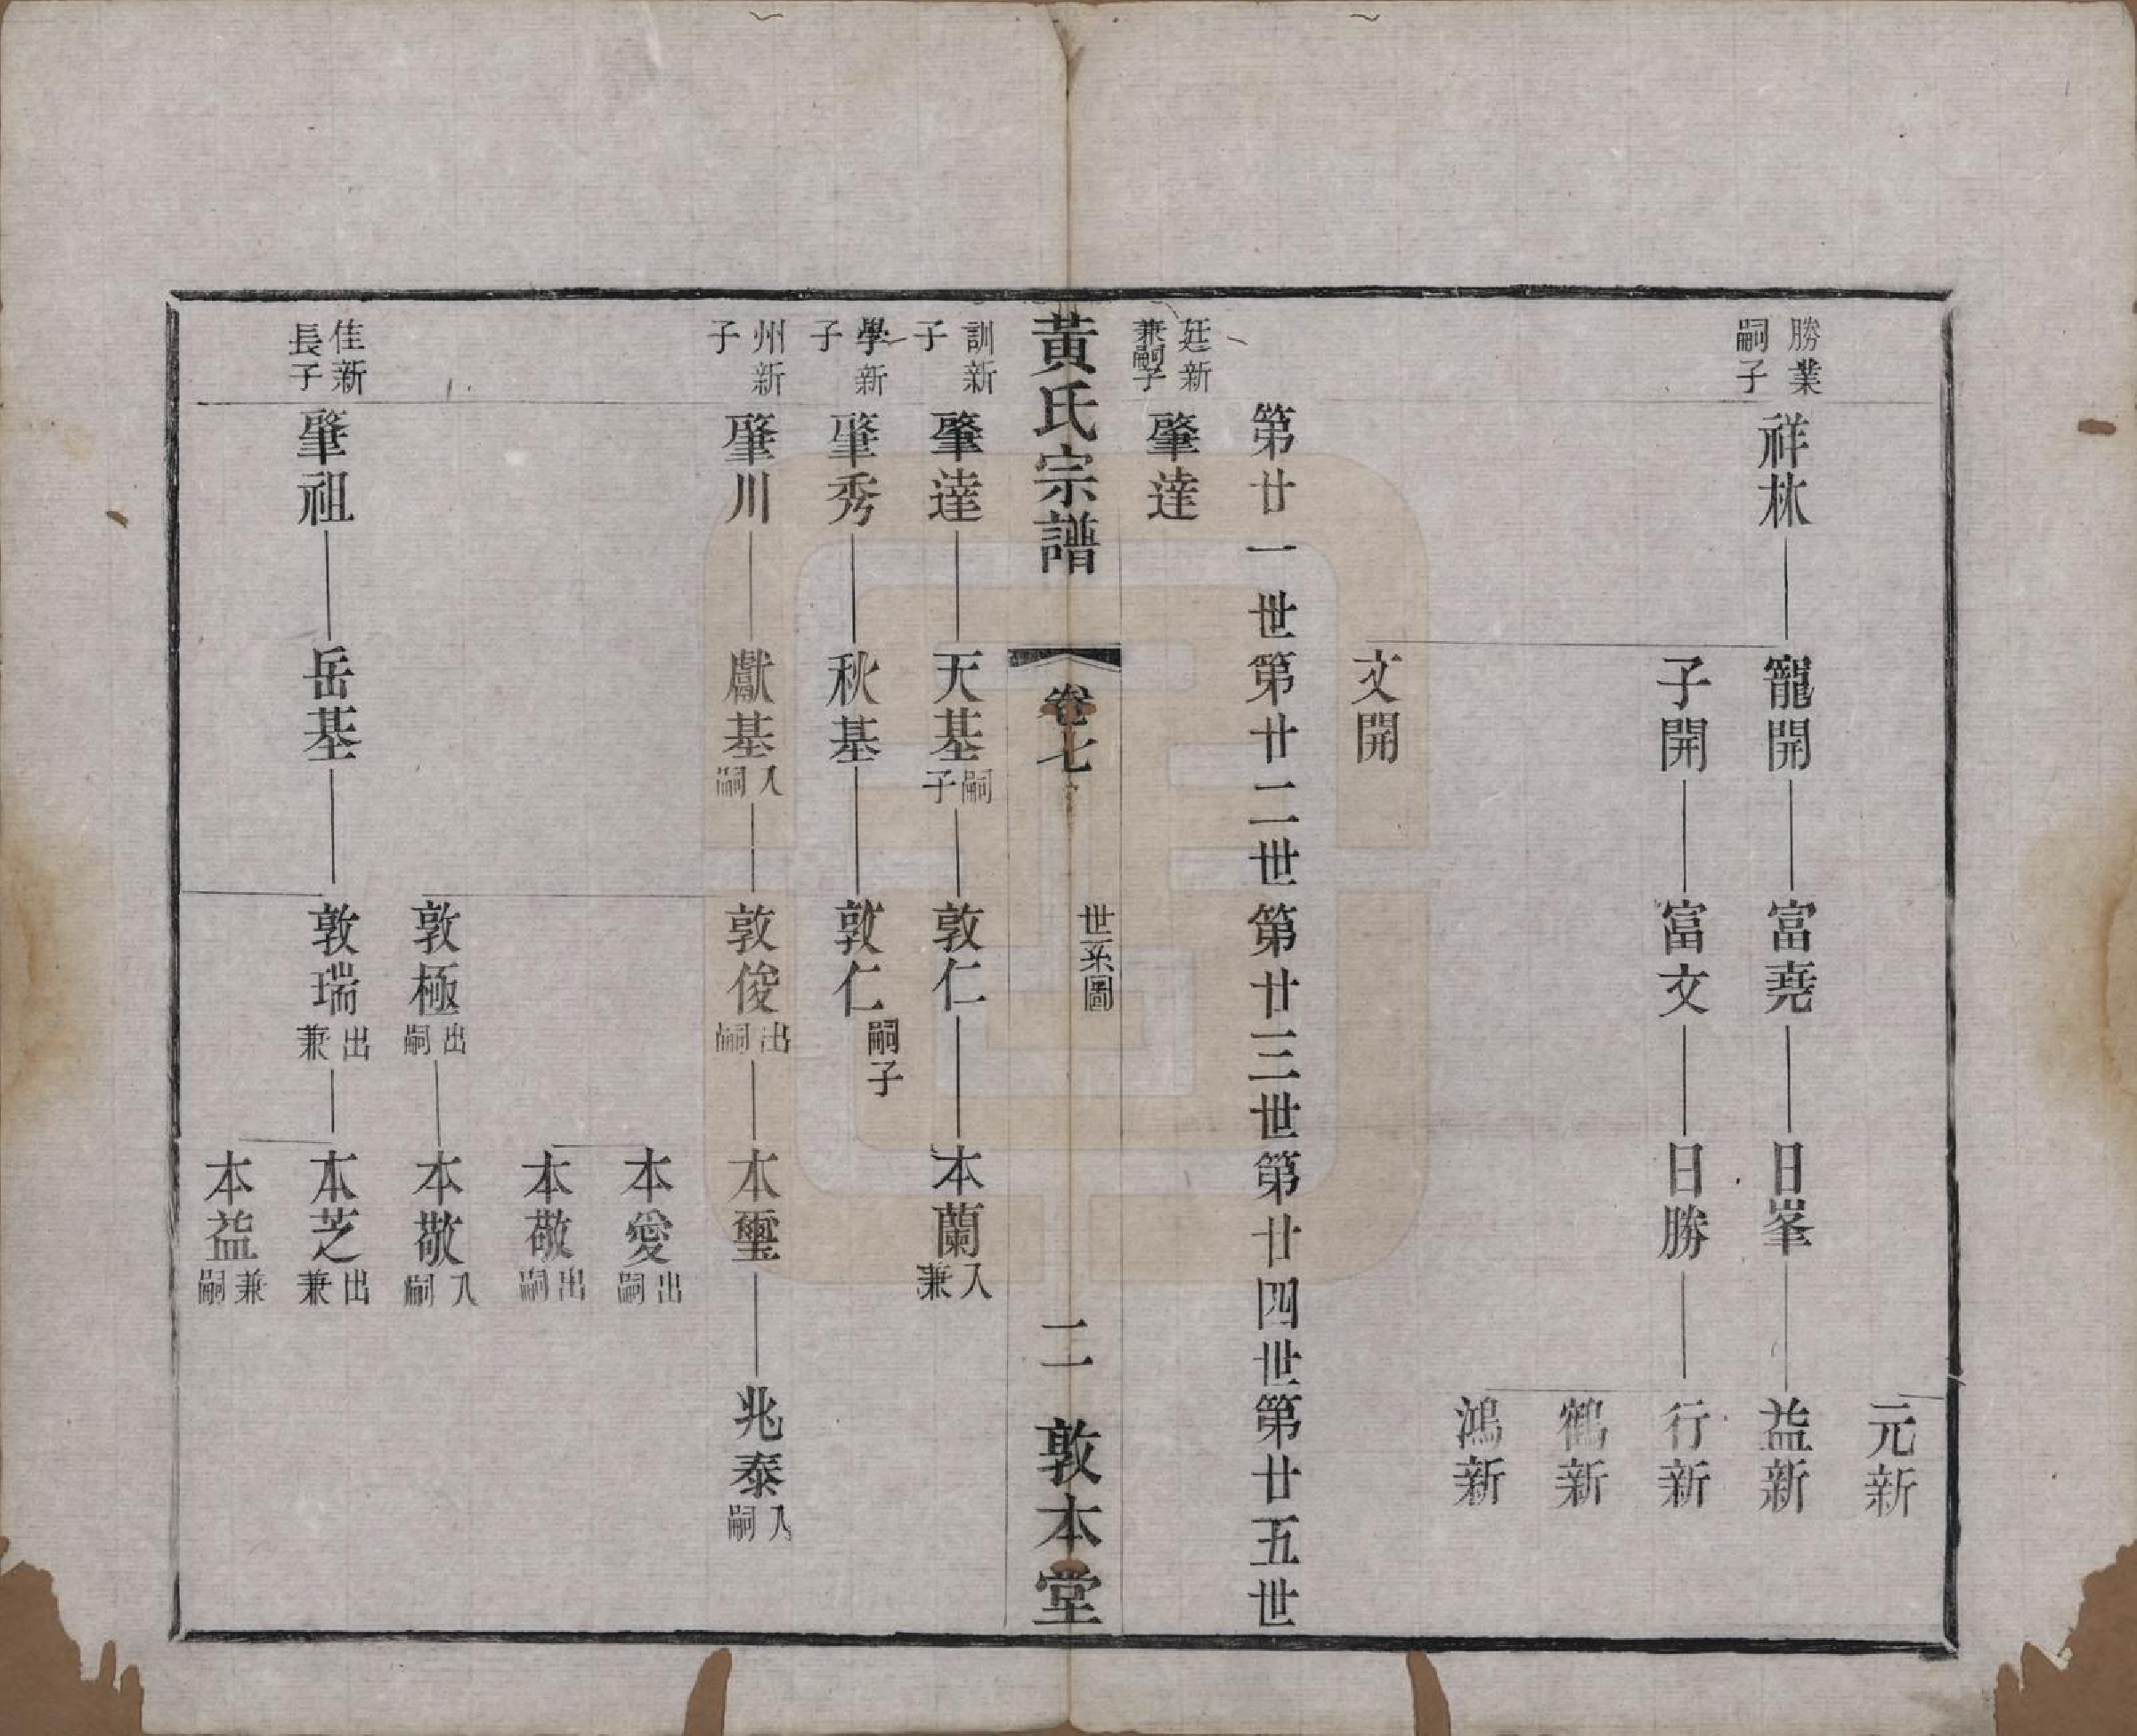 元新
勝業嗣子 祥林 寵開 富堯 日峯 益新
子開 富文 日勝 行新
鶴新
鴻新
文開
第廿一世 第廿二世 第廿三世 第廿四世 第廿五世
廷新兼嗣子 肇達
黃氏宗譜 卷七 世系圖 二 敦本堂
訓新子 肇達 天基嗣子 敦仁 本蘭入兼
學新子 肇秀 秋基 敦仁嗣子
州新子 肇川 獻基入嗣 敦俊出嗣 本璽 兆泰入嗣
本愛出嗣
本敬出嗣
敦極出嗣 本敬入嗣
佳新長子 肇祖 岳基 敦瑞出兼 本芝出兼
本益兼嗣